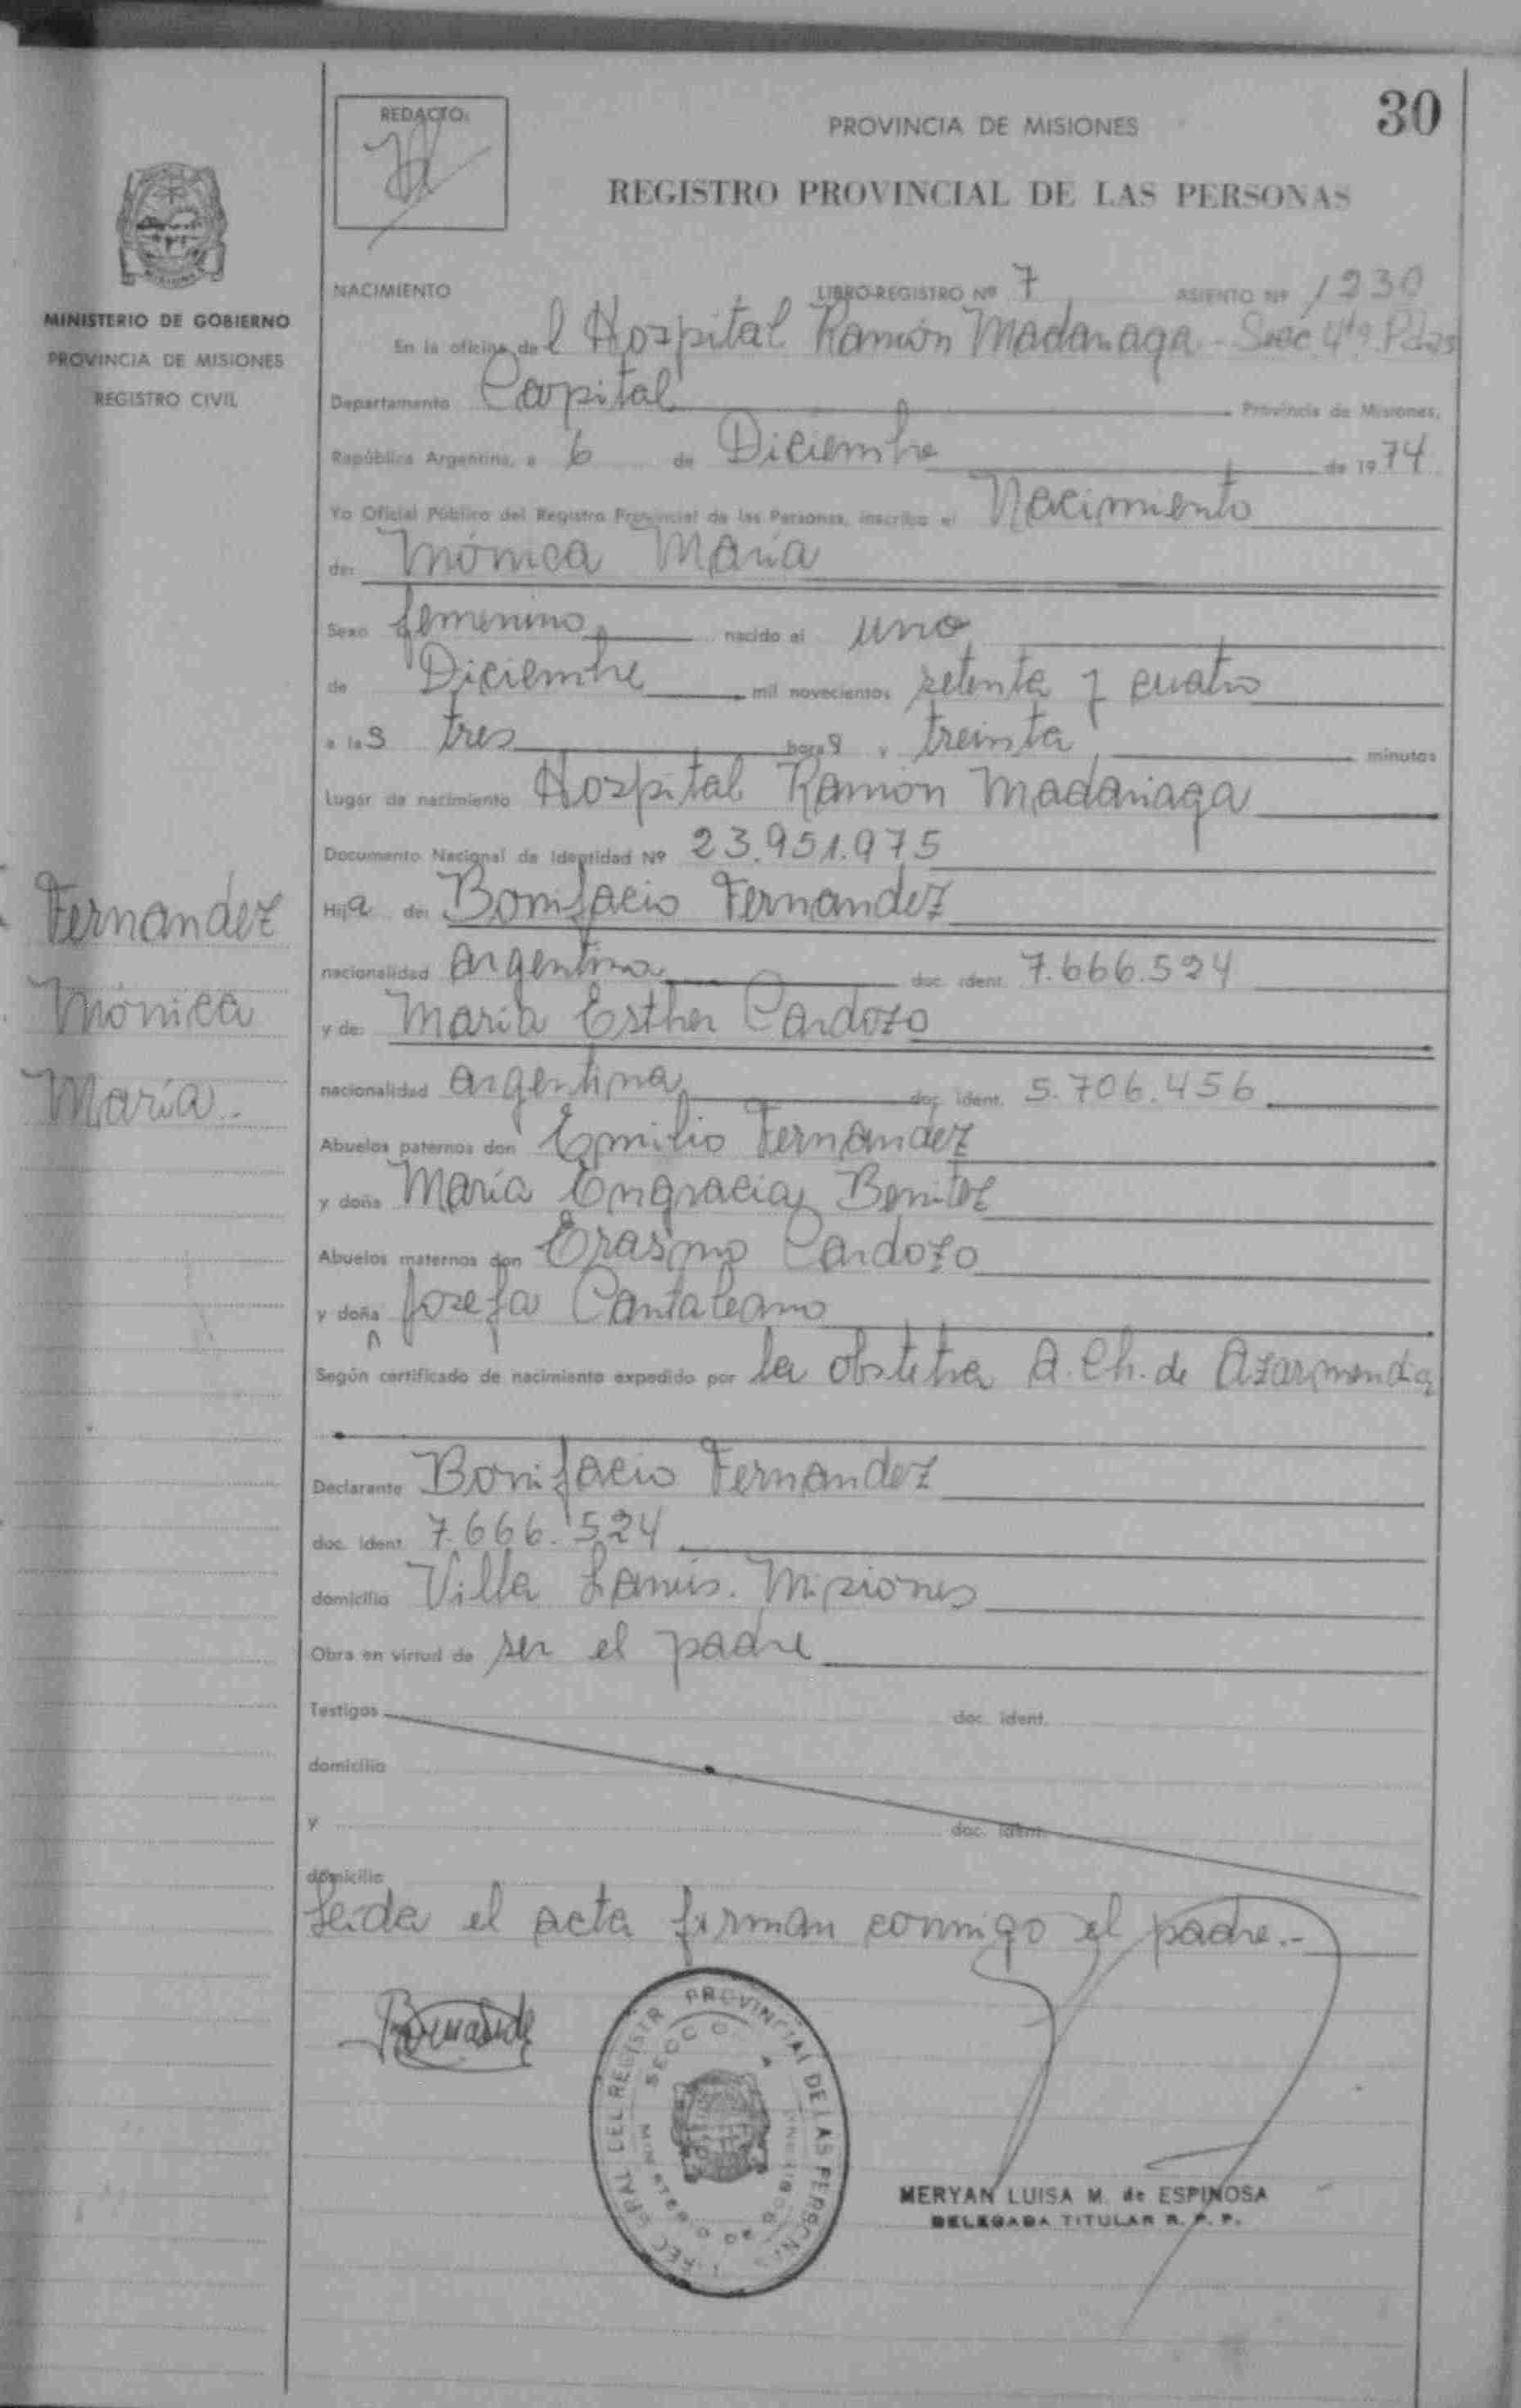 30
REDACTO:
PROVINCIA DE MISIONES
REGISTRO PROVINCIAL DE LAS PERSONAS
MINISTERIO DE GOBIERNO
PROVINCIA DE MISIONES
REGISTRO CIVIL
NACIMIENTO LIBRO-REGISTRO Nº 7 ASIENTO Nº 1230
En la oficina del Hospital Ramón Madariaga - Secc. 4ta. Pdas
Departamento Capital Provincia de Misiones,
República Argentina, a 6 de Diciembre de 1974
Yo Oficial Público del Registro Provincial de las Personas, inscribo el Nacimiento
de: Mónica María
Sexo femenino nacido el uno
de Diciembre mil novecientos setenta y cuatro
a las tres horas y treinta minutos
Lugar de nacimiento Hospital Ramón Madariaga
Documento Nacional de Identidad Nº 23.951.975
Hija de: Bonifacio Fernandez
nacionalidad argentina doc. ident. 7.666.524
y de: María Esther Cardozo
nacionalidad argentina doc. ident. 5.706.456
Abuelos paternos don Emilio Fernández
y doña María Engracia Benitez
Abuelos maternos don Erasmo Cardozo
y doña Josefa Cantaleano
Según certificado de nacimiento expedido por la obstetra A. Ch. de Azarmendia
Declarante Bonifacio Fernandez
doc. ident. 7.666.524
domicilio Villa Lanús. Misiones
Obra en virtud de ser el padre
Testigos doc. ident.
domicilio
y doc. ident.
domicilio
Leida el acta firman conmigo el padre.-
Fernandez
Mónica
María.-
PROVINCIAL DE LAS PERSONAS
MERYAN LUISA M. de ESPINOSA
DELEGADA TITULAR R. P. P.